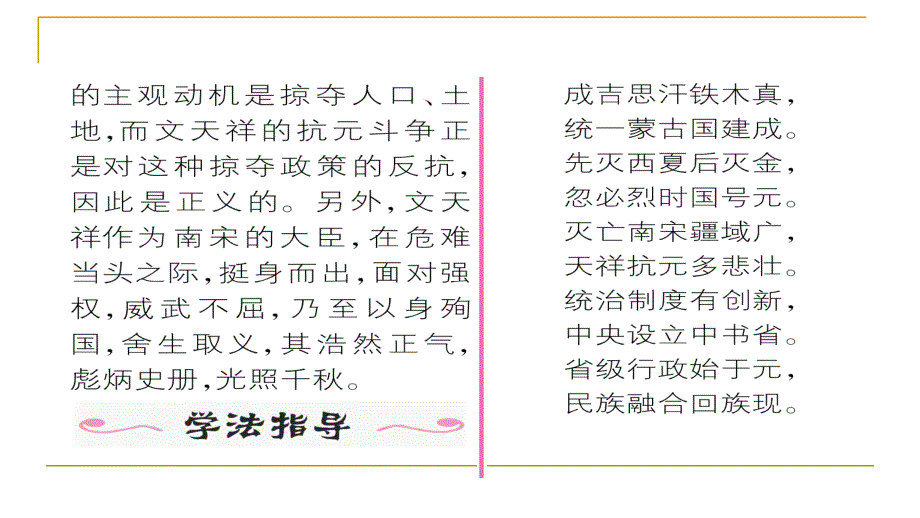 的主观动机是掠夺人口、土
地,而文天祥的抗元斗争正
是对这种掠夺政策的反抗,
因此是正义的。另外,文天
祥作为南宋的大臣,在危难
当头之际,挺身而出,面对强
权,威武不屈,乃至以身殉
国,舍生取义,其浩然正气,
彪炳史册,光照千秋。
学法指导
成吉思汗铁木真,
统一蒙古国建成。
先灭西夏后灭金,
忽必烈时国号元。
灭亡南宋疆域广,
天祥抗元多悲壮。
统治制度有创新,
中央设立中书省。
省级行政始于元,
民族融合回族现。